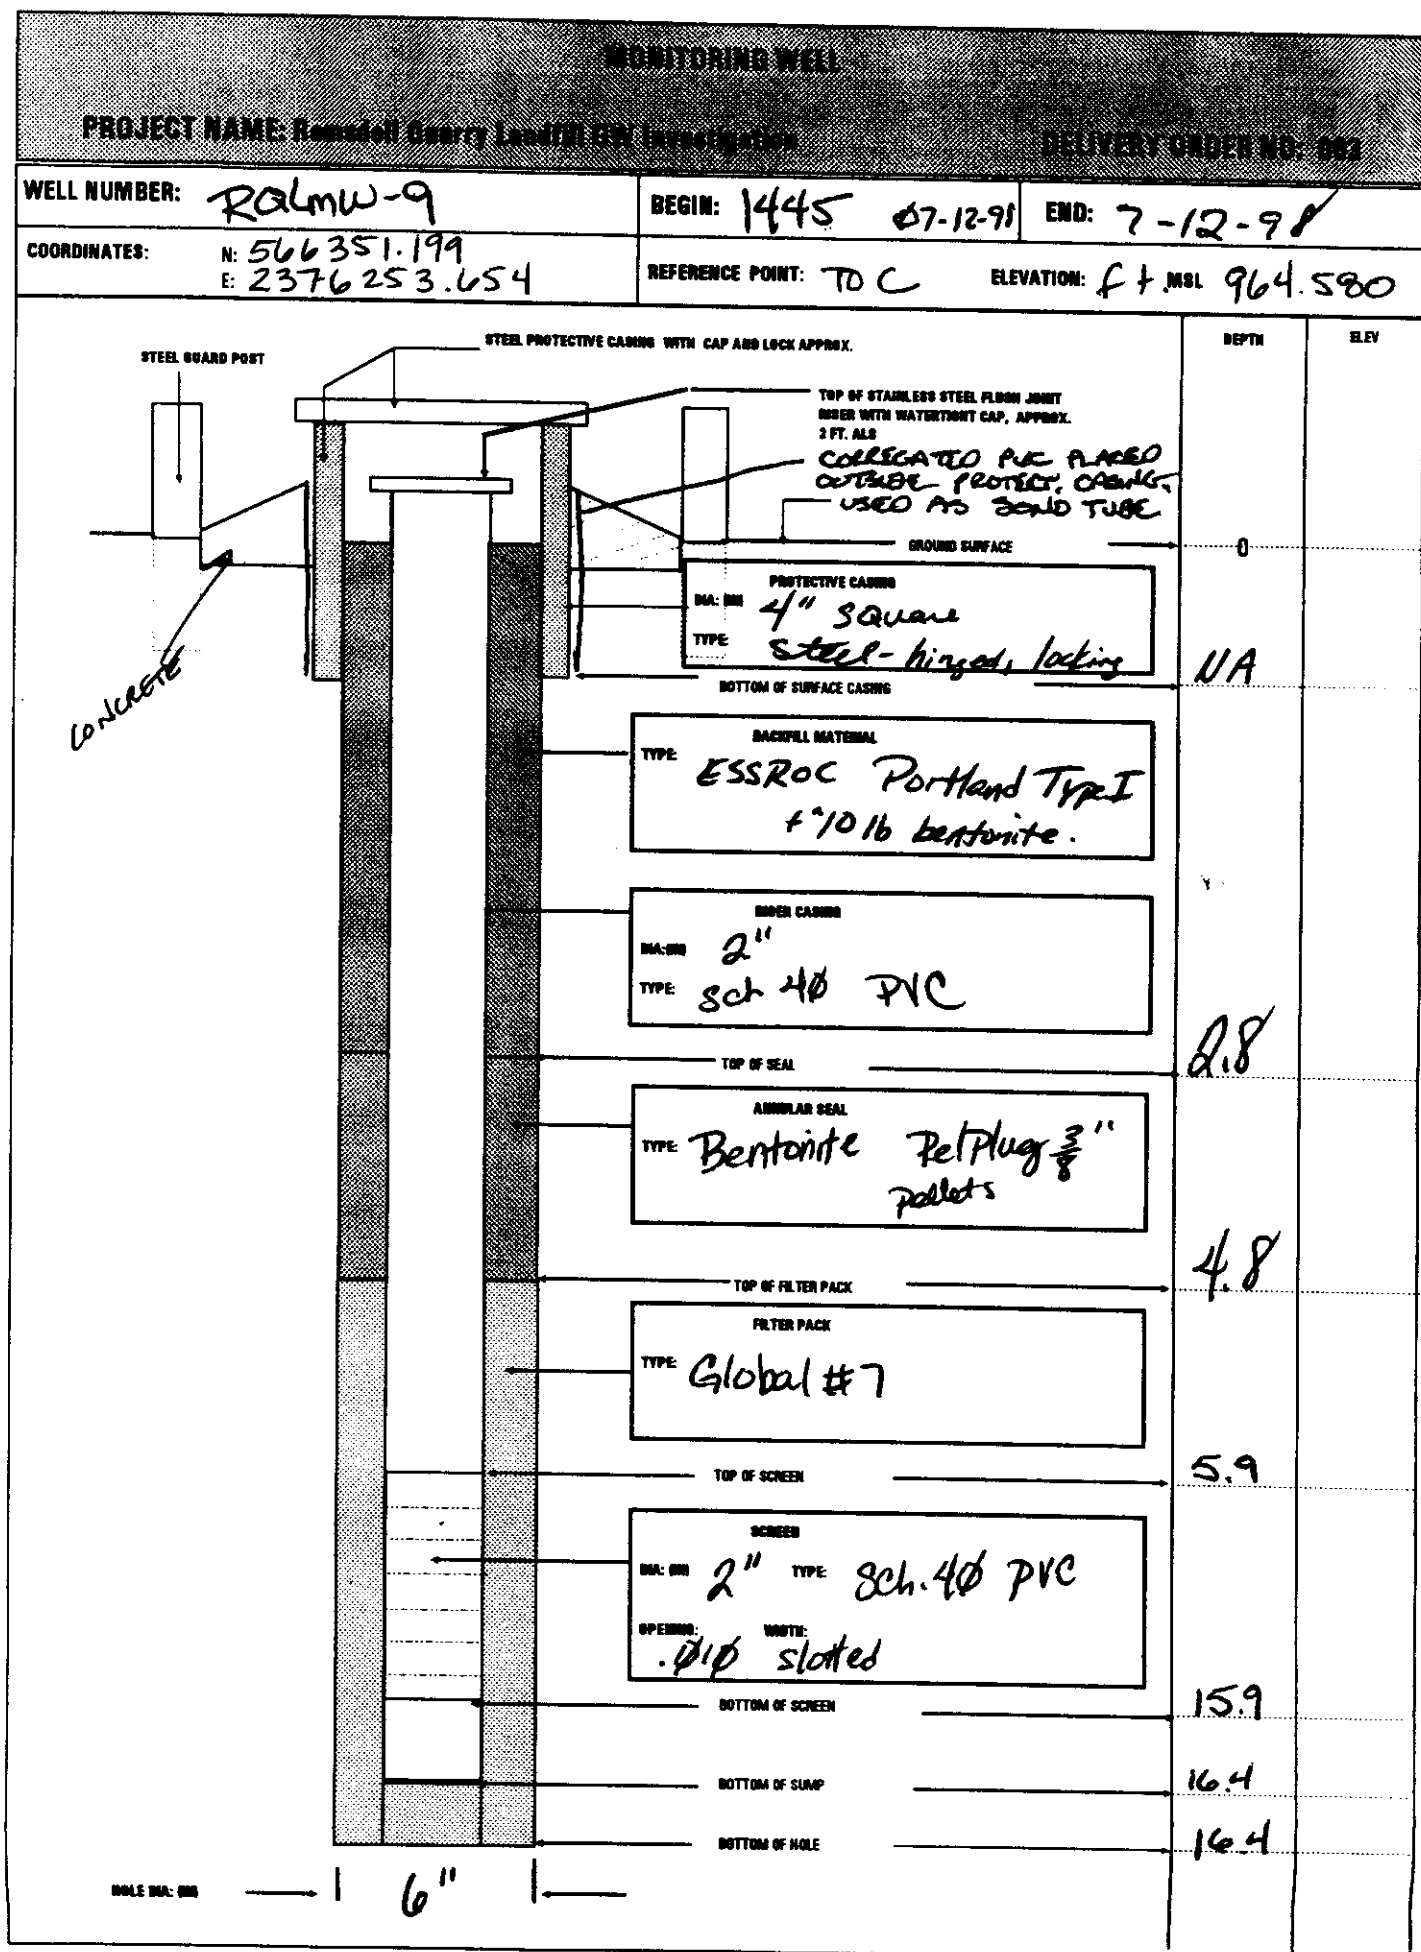 MONITORING WELL
PROJECT NAME: Ramsdell Quarry Landfill GW Investigation
DELIVERY ORDER NO: 003
WELL NUMBER: RQLMW-9
BEGIN: 1445 07-12-98
END: 7-12-98
COORDINATES:
N: 566351.199
E: 2376253.654
REFERENCE POINT: TOC
ELEVATION: ft. MSL 964.580
DEPTH
ELEV
STEEL GUARD POST
STEEL PROTECTIVE CASING WITH CAP AND LOCK APPROX.
TOP OF STAINLESS STEEL FLUSH JOINT
RISER WITH WATERTIGHT CAP, APPROX.
2 FT. ALS
CORREGATED PVC PLACED
OUTSIDE PROTECT. CASING,
USED AS SONO TUBE
GROUND SURFACE
0
PROTECTIVE CASING
DIA: 4" square
TYPE: steel-hinged, locking
NA
BOTTOM OF SURFACE CASING
CONCRETE
BACKFILL MATERIAL
TYPE: ESSROC Portland Type I
+ ~10 lb bentonite.
RISER CASING
DIA: 2"
TYPE: Sch 4Ø PVC
2.8
TOP OF SEAL
ANNULAR SEAL
TYPE: Bentonite PelPlug 3/8"
pellets
4.8
TOP OF FILTER PACK
FILTER PACK
TYPE: Global #7
TOP OF SCREEN
5.9
SCREEN
DIA: 2" TYPE: Sch. 4Ø PVC
OPENING: WIDTH:
.Ø1Ø slotted
BOTTOM OF SCREEN
15.9
BOTTOM OF SUMP
16.4
BOTTOM OF HOLE
16.4
HOLE DIA: 6"